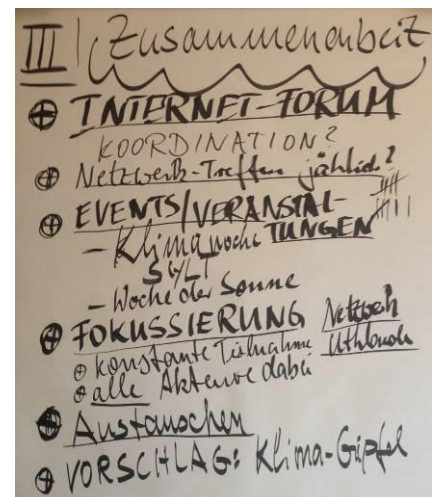 III Zusammenarbeit
⊕ INTERNET-FORUM
KOORDINATION?
⊕ Netzwerk-Treffen jährlich?
⊕ EVENTS/VERANSTAL-
- Klimawoche TUNGEN
SYLT
- Woche der Sonne
⊕ FOKUSSIERUNG Netzwerk
⊕ konstante Teilnahme
⊕ alle Akteure dabei
Austauschen
⊕ VORSCHLAG: Klima-Gipfel